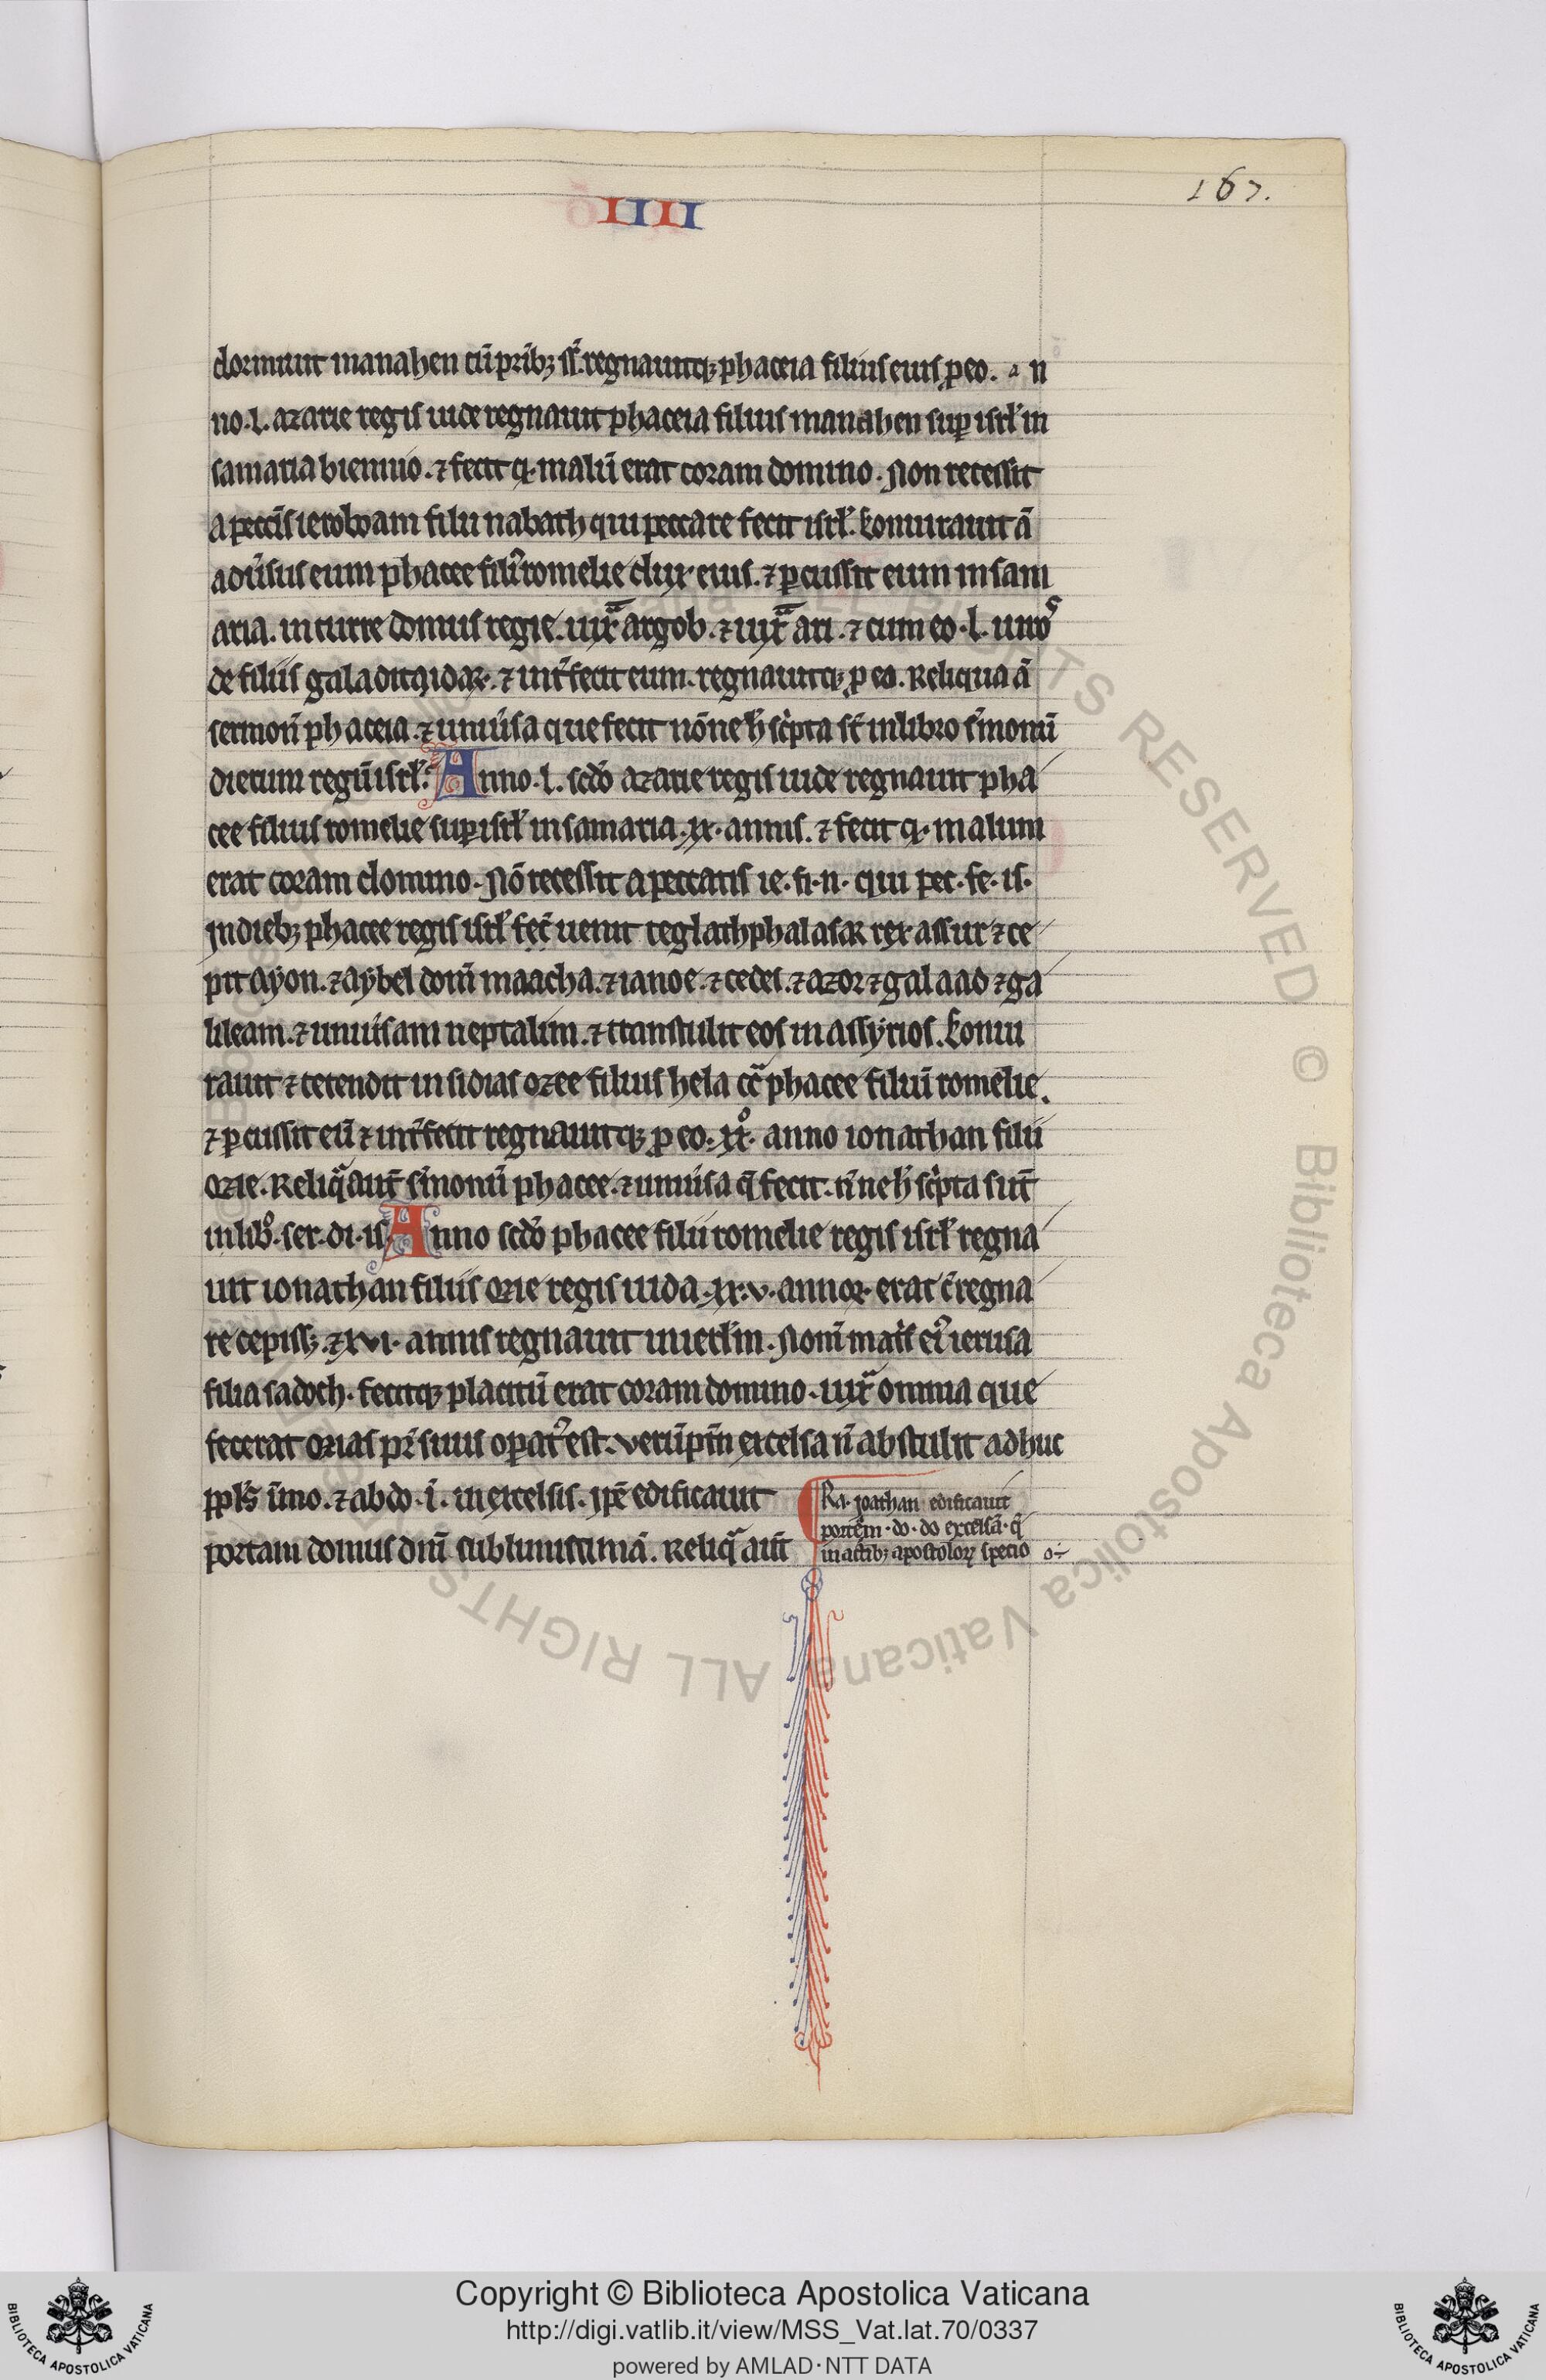 IIII
167.
dormiuit manahen cũ pr̃ibꝫ sť. regnauitqꝫ phaceia filius eius ꝓ eo. a n
no .l. azarie regis iude regnauit phaceia filius manahen suꝑ isrł in
samaria biennio. ⁊ fecit qͥ. malũ erat coram domino. Non recessit
a pecc̃is ieroboam filii nabath qui peccare fecit isrł. Coniurauit ã
adũsus eum phacee filiꝰ romelie dux eius. ⁊ ꝑcussit eum in sam
aria. in turre domus regie. iuxͣ argob. ⁊ iuxͣ ari. ⁊ cum eo .l. uiroˢ
de filiis galaditaꝝ. ⁊ int̃fecit eum. regnauitqꝫ ꝓ eo. Reliqua ã
sermoñ phaceia. ⁊ uniũsa que fecit nõne h̃ sc̃pta st̃ in libro sm̃onũ
dierum regũ isrł. Anno .l. scďo azarie regis iude regnauit pha
cee filius romelie suꝑ isrł in samaria .xx. annis. ⁊ fecit qͥ. malum
erat coram domino. Nõ recessit a peccatis ie. fi. n. qui pec. fe. is.
In diebꝫ phacee regis isrł uenit teglathphalasar rex assur ⁊ ce
pit ayon. ⁊ aybel dom̃ maacha. ⁊ ianoe. ⁊ cedes. ⁊ azor ⁊ galaad ⁊ ga
lileam. ⁊ uniũsam neptalim. ⁊ transtulit eos in assyrios. Coniu
rauit ⁊ tetendit insidias ozee filius hela cͣ phacee filiũ romelie.
⁊ ꝑcussit eũ ⁊ int̃fecit regnauitqꝫ ꝓ eo. xx̊. anno ionathan filii
ozie. Reliqͣ aut̃ sm̃onũ phacee. ⁊ uniũsa q̃ fecit. ñ ne h̃ sc̃pta sũt
in libͦ. ser. di. is Anno scďo phacee filii romelie regis isrł regna
uit ionathan filiꝰ ozie regis iuda. xx. v. annoꝝ. erat c̃ regna
re cepissꝫ. ⁊ xvi. annis regnauit in ierłm. Nom̃ mat̃s eiꝰ ierusa
filia sadoch. fecitqꝫ placitũ erat coram domino. iuxͣ omnia que
fecerat ozias pr̃ suus oꝑatꝰ est. Verũptm̃ excelsa ñ abstulit adhuc
ppłs ĩmo. ⁊ abdo. ĩ. in excelsis. Ip̃e edificauit
portam domus dnĩ sublimissimã. Reliqͣ aũt
Ra. Joathan edificauit
portem. do. do excelsã. q̃
in actibꝫ apostoloꝝ specio
Copyright © Biblioteca Apostolica Vaticana
http://digi.vatlib.it/view/MSS_Vat.lat.70/0337
powered by AMLAD·NTT DATA
BIBLIOTECA APOSTOLICA VATICANA
BIBLIOTECA APOSTOLICA VATICANA